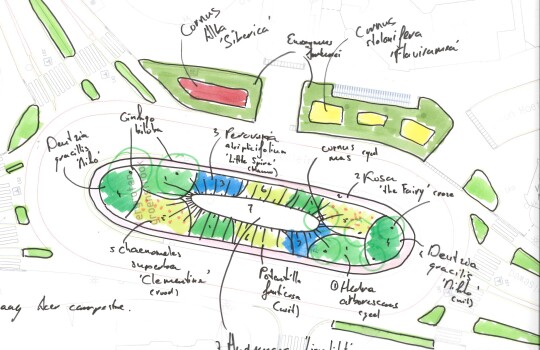 Cornus
Alba
'Siberica'
Euonymus
Cornus
stolonifera
'Flaviramea'
Ginkgo
biloba
Deutzia
gracilis
'Niko'
3 Perovskia
atriplicifolia
'Little Spire'
(blauw)
cornus
mas geel
2 Rosa
'the Fairy' roze
4
1
3
6
5
7
2
4
5 chaenomeles
superba
'Clementine'
(rood)
Potentilla
fruticosa
(wit)
① Hedra
arborescens
geel
Deutzia
gracilis
'Nikko'
(wit)
haag Acer campestre.
7